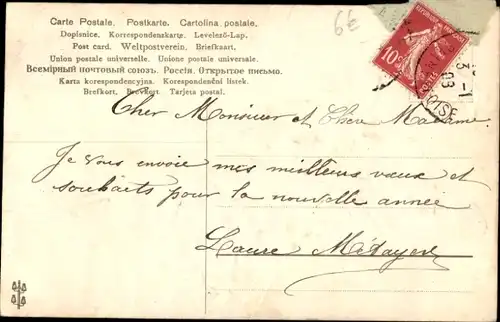 Carte Postale. Postkarte. Cartolina postale.
Dopisnice. Korrespondenskarte. Levelező-Lap.
Post card. Weltpostverein. Briefkaart.
Union postale universelle. Unione postale universale.
Всемірный почтовый союзъ. Россія. Открытое письмо.
Karta korespondencyjna. Korespondenční lístek.
Brefkort. Brevkort. Tarjeta postal.
6E
10c
POSTES
3 - 1
08
OISE
Cher Monsieur et Chère Madame
Je vous envoie mes meilleurs vœux et
souhaits pour la nouvelle année
Laure Métayer